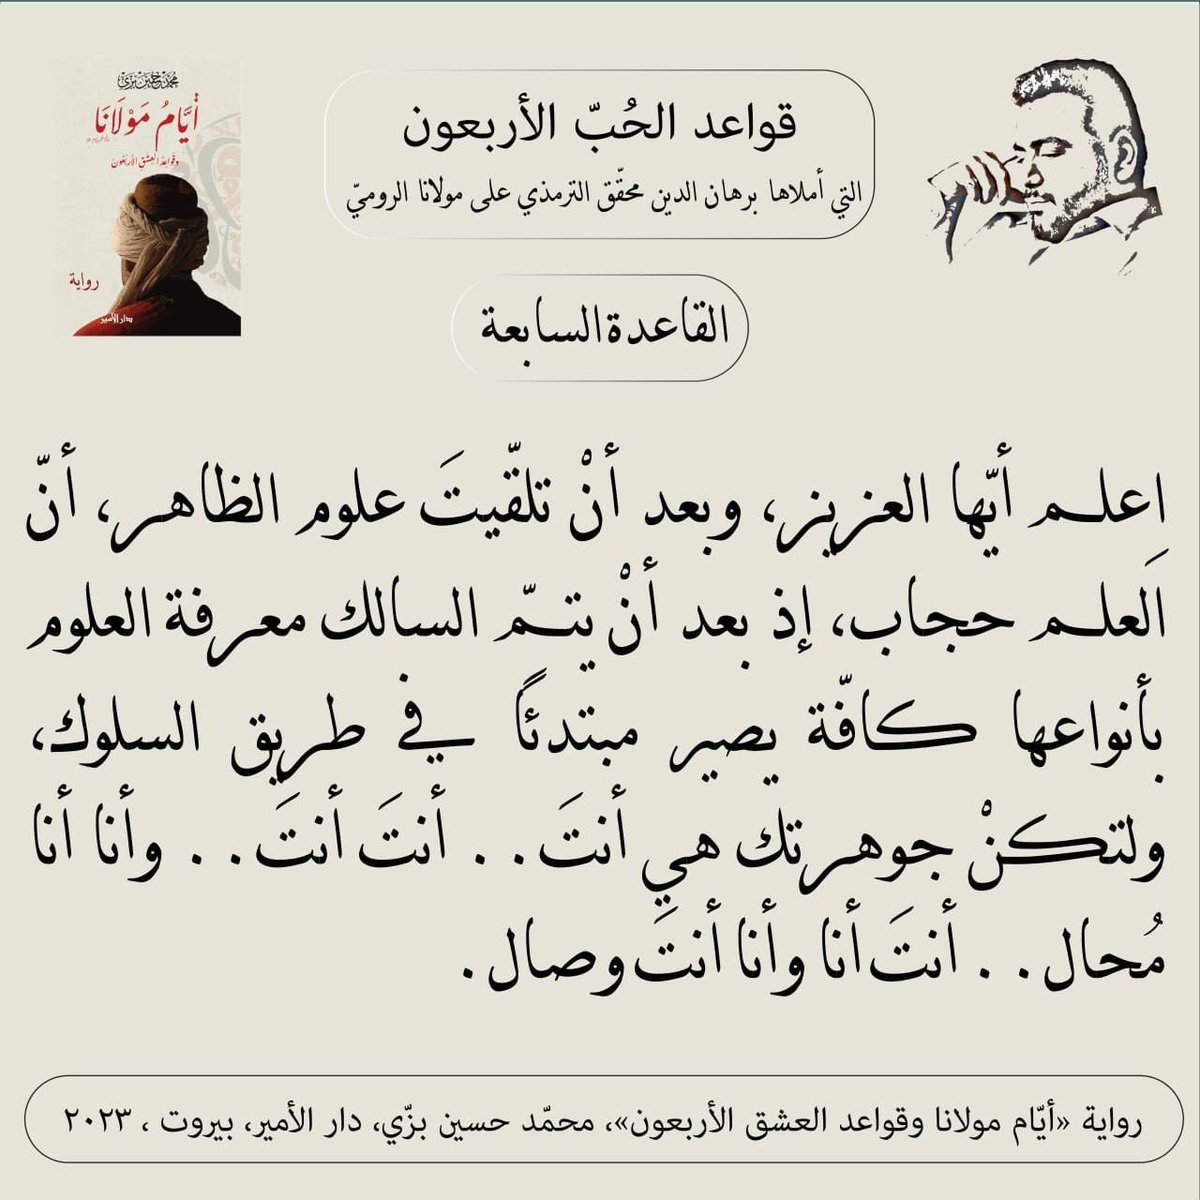 محمد حسين بزي
أيَّامُ مَوْلَانَا
وقواعد العشق الأربعون
رواية
دار الأمير
قواعد الحُبّ الأربعون
التي أملاها برهان الدين محقّق الترمذي على مولانا الروميّ
القاعدة السابعة
اِعلم أيّها العزيز، وبعد أنْ تلقّيتَ علوم الظاهر، أنّ
العلم حجاب، إذ بعد أنْ يتمّ السالك معرفة العلوم
بأنواعها كافّة يصير مبتدئًا في طريق السلوك،
ولتكنْ جوهرتك هي أنتَ.. أنتَ أنتَ.. وأنا أنا
مُحال.. أنتَ أنا وأنا أنتَ وصال.
رواية «أيّام مولانا وقواعد العشق الأربعون»، محمّد حسين بزّي، دار الأمير، بيروت ، ٢٠٢٣